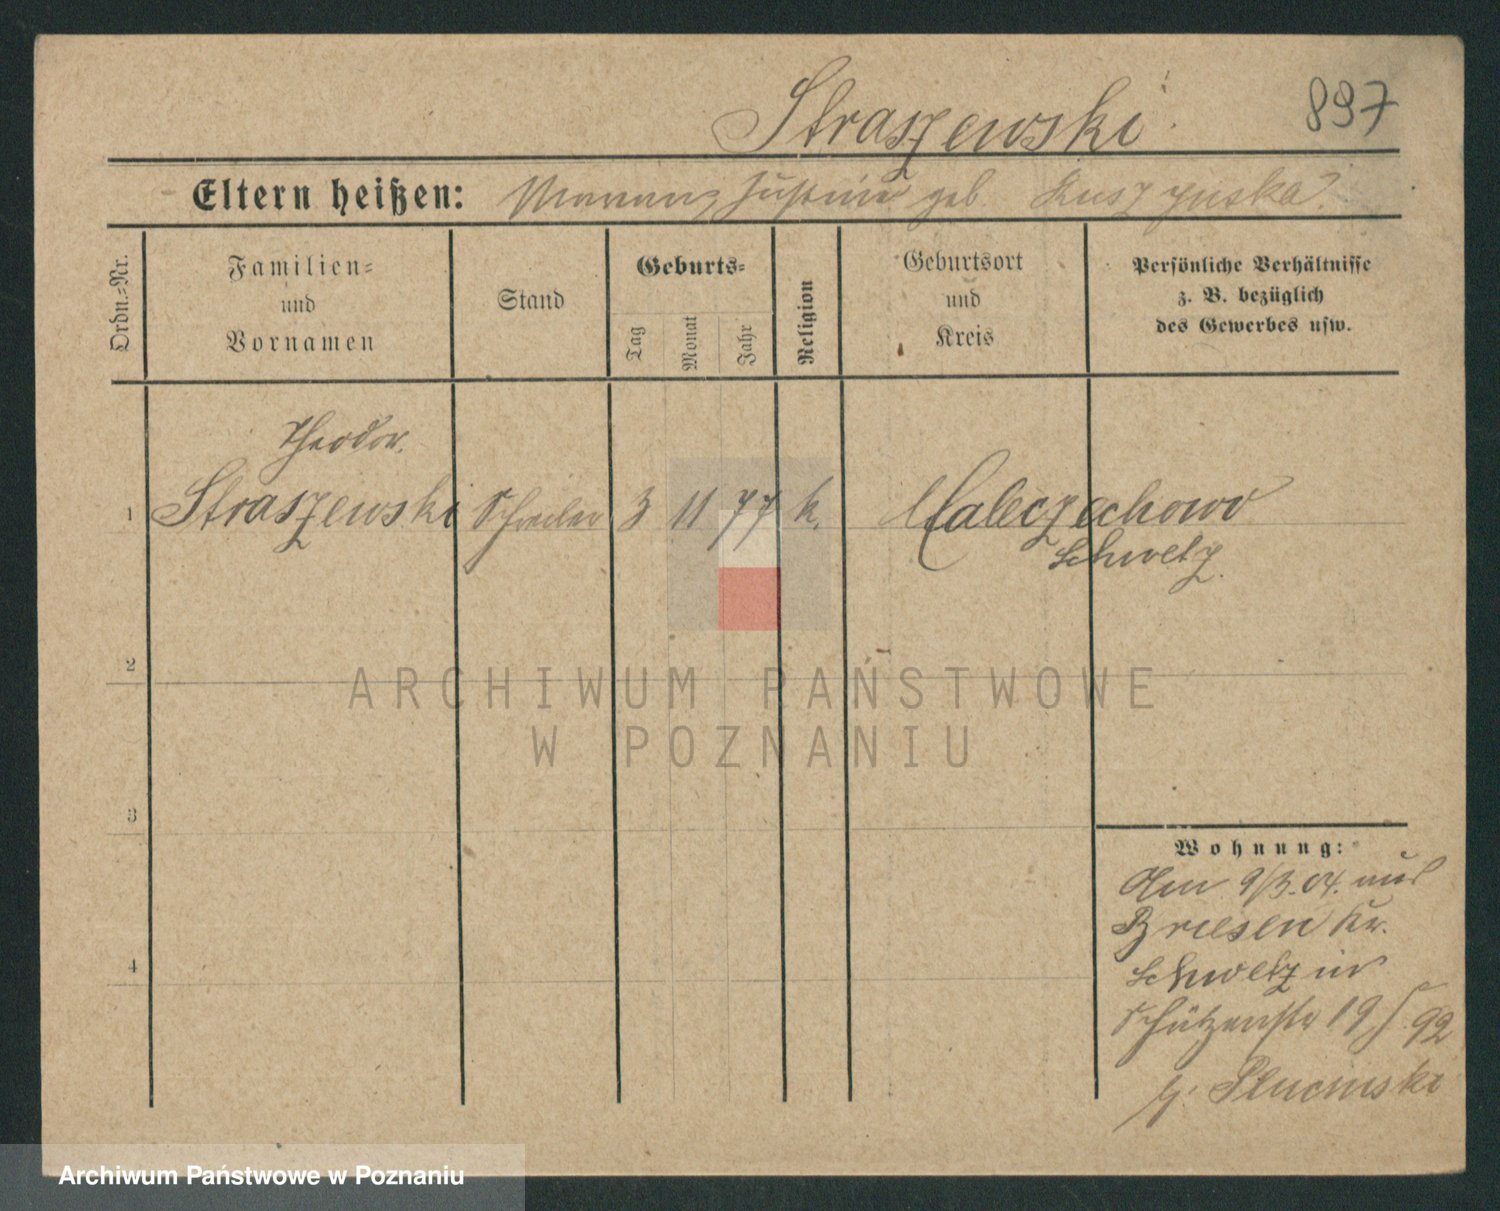 Straszewski
897
Eltern heißen: Justine geb.
Ordn.-Nr.
Familien-
und
Vornamen
Stand
Geburts-
Tag
Monat
Jahr
Religion
Geburtsort
und
Kreis
Persönliche Verhältnisse
z. B. bezüglich
des Gewerbes usw.
Theodor.
1 Straszewski Schreiber 3 11 77 k. Maleczechowo
Schwetz.
2
3
4
Wohnung:
Am 9/3.04. aus
Briesen Kr.
Schwetz in
Schützenstr 19
b. Plucinski
ARCHIWUM PAŃSTWOWE
W POZNANIU
Archiwum Państwowe w Poznaniu